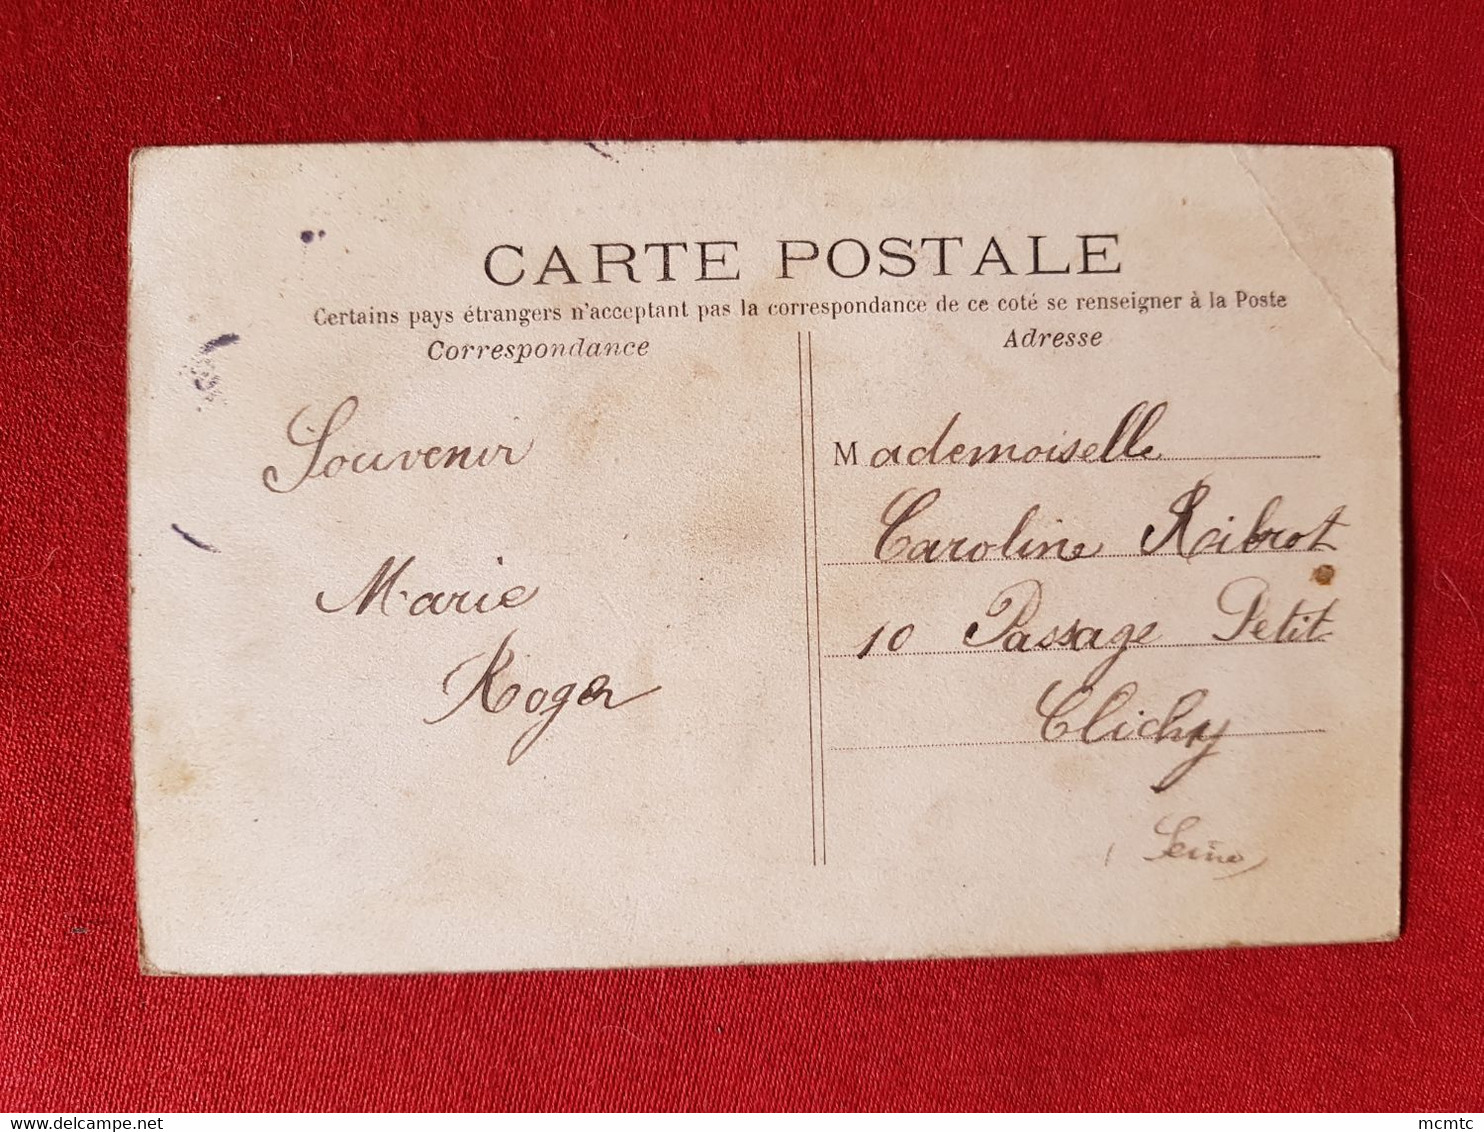 CARTE POSTALE
Certains pays étrangers n'acceptant pas la correspondance de ce coté se renseigner à la Poste
Correspondance
Adresse
Souvenir
Marie
Roger
Mademoiselle
Caroline Ribrot
10 Passage Petit
Clichy
(Seine)
mcmtc